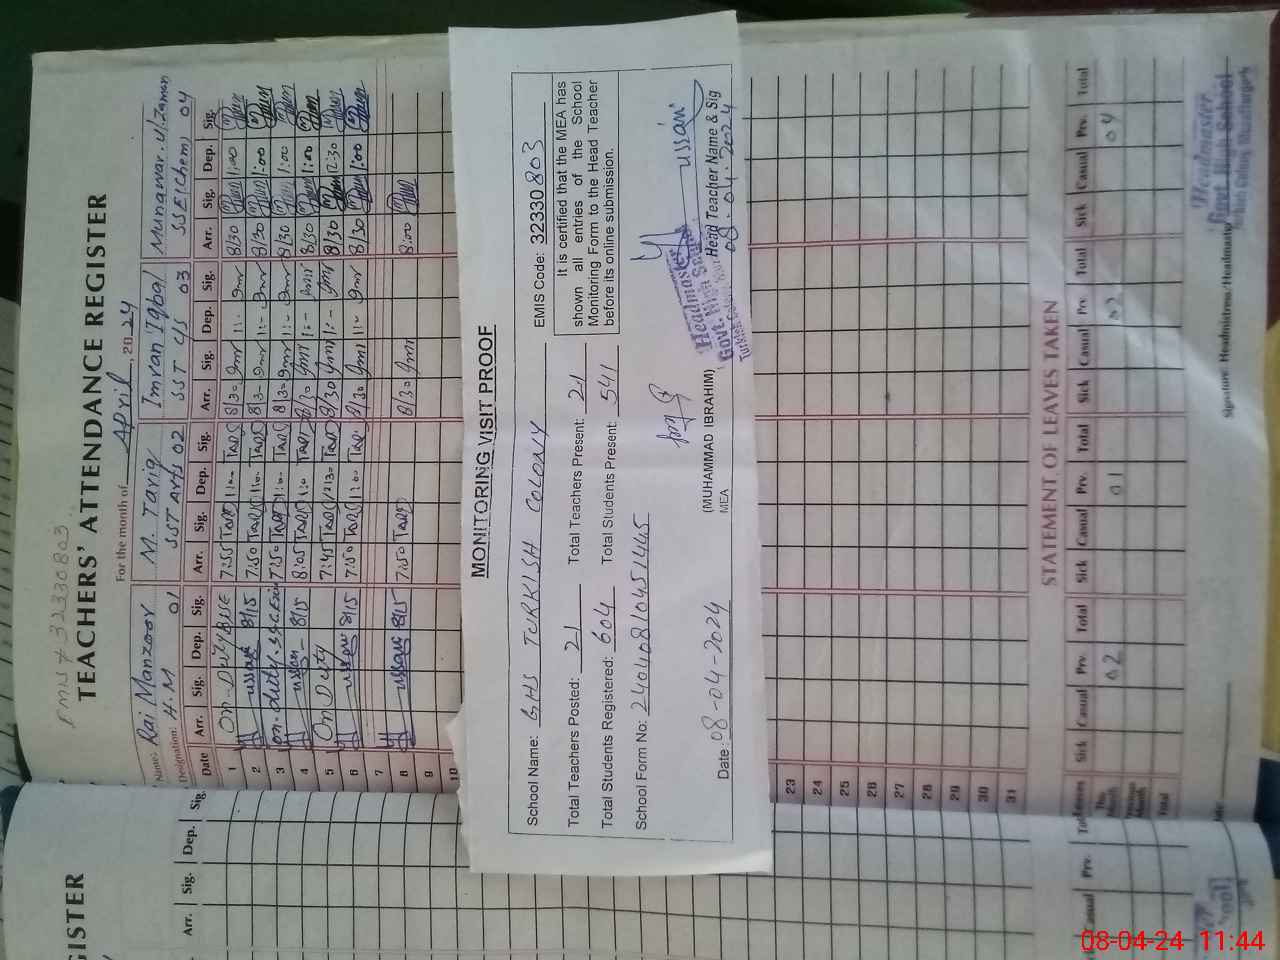 PMIU # 32330803
TEACHERS' ATTENDANCE REGISTER
For the month of April, 2024
Name: Rai Manzoor M. Tariq Imran Iqbal Munawar-ul-Zaman
Designation: H.M 01 SST Arts 02 SST 03 SSE(Chem) 04
Date Arr. Sig. Dep. Sig. Arr. Sig. Dep. Sig. Arr. Sig. Dep. Sig. Arr. Sig. Dep. Sig.
1 On-Duty BISE 7:55 1:00 8/30 1:- 8/30 1:00
2 8/15 7:50 1:00 8:30 1:- 8/30 1:00
3 on-duty 7:50 1:00 8/30 1:- 8/30 1:00
4 8/15 8:05 1:0 8/30 1:- 8/30 1:00
5 On Duty 7:45 12:30 8/30 8/30 12:30
6 8/15 7:50 1:00 8/30 11:- 8/30 1:00
7
8 8/15 7:50 8/30 8:00
9
10
MONITORING VISIT PROOF
School Name: GHS TURKISH COLONY EMIS Code: 32330803
Total Teachers Posted: 21 Total Teachers Present: 21
Total Students Registered: 604 Total Students Present: 541
It is certified that the MEA has
shown all entries of the School
Monitoring Form to the Head Teacher
before its online submission.
School Form No: 240408104514​45
(MUHAMMAD IBRAHIM)
MEA
Headmaster
Govt. High School
Head Teacher Name & Sig
Date: 08-04-2024
08.04.2024
23
24
25
26
27
28
29
30
31
STATEMENT OF LEAVES TAKEN
Sick Casual Prv. Total Sick Casual Prv. Total Sick Casual Prv. Total Sick Casual Prv. Total
This Month 02 01 02 04
Previous Month
Total
Signature: Headmistress/Headmaster
Headmaster
Govt. High School
GISTER
Arr. Sig. Dep. Sig.
Casual Prv.
08-04-24 11:44